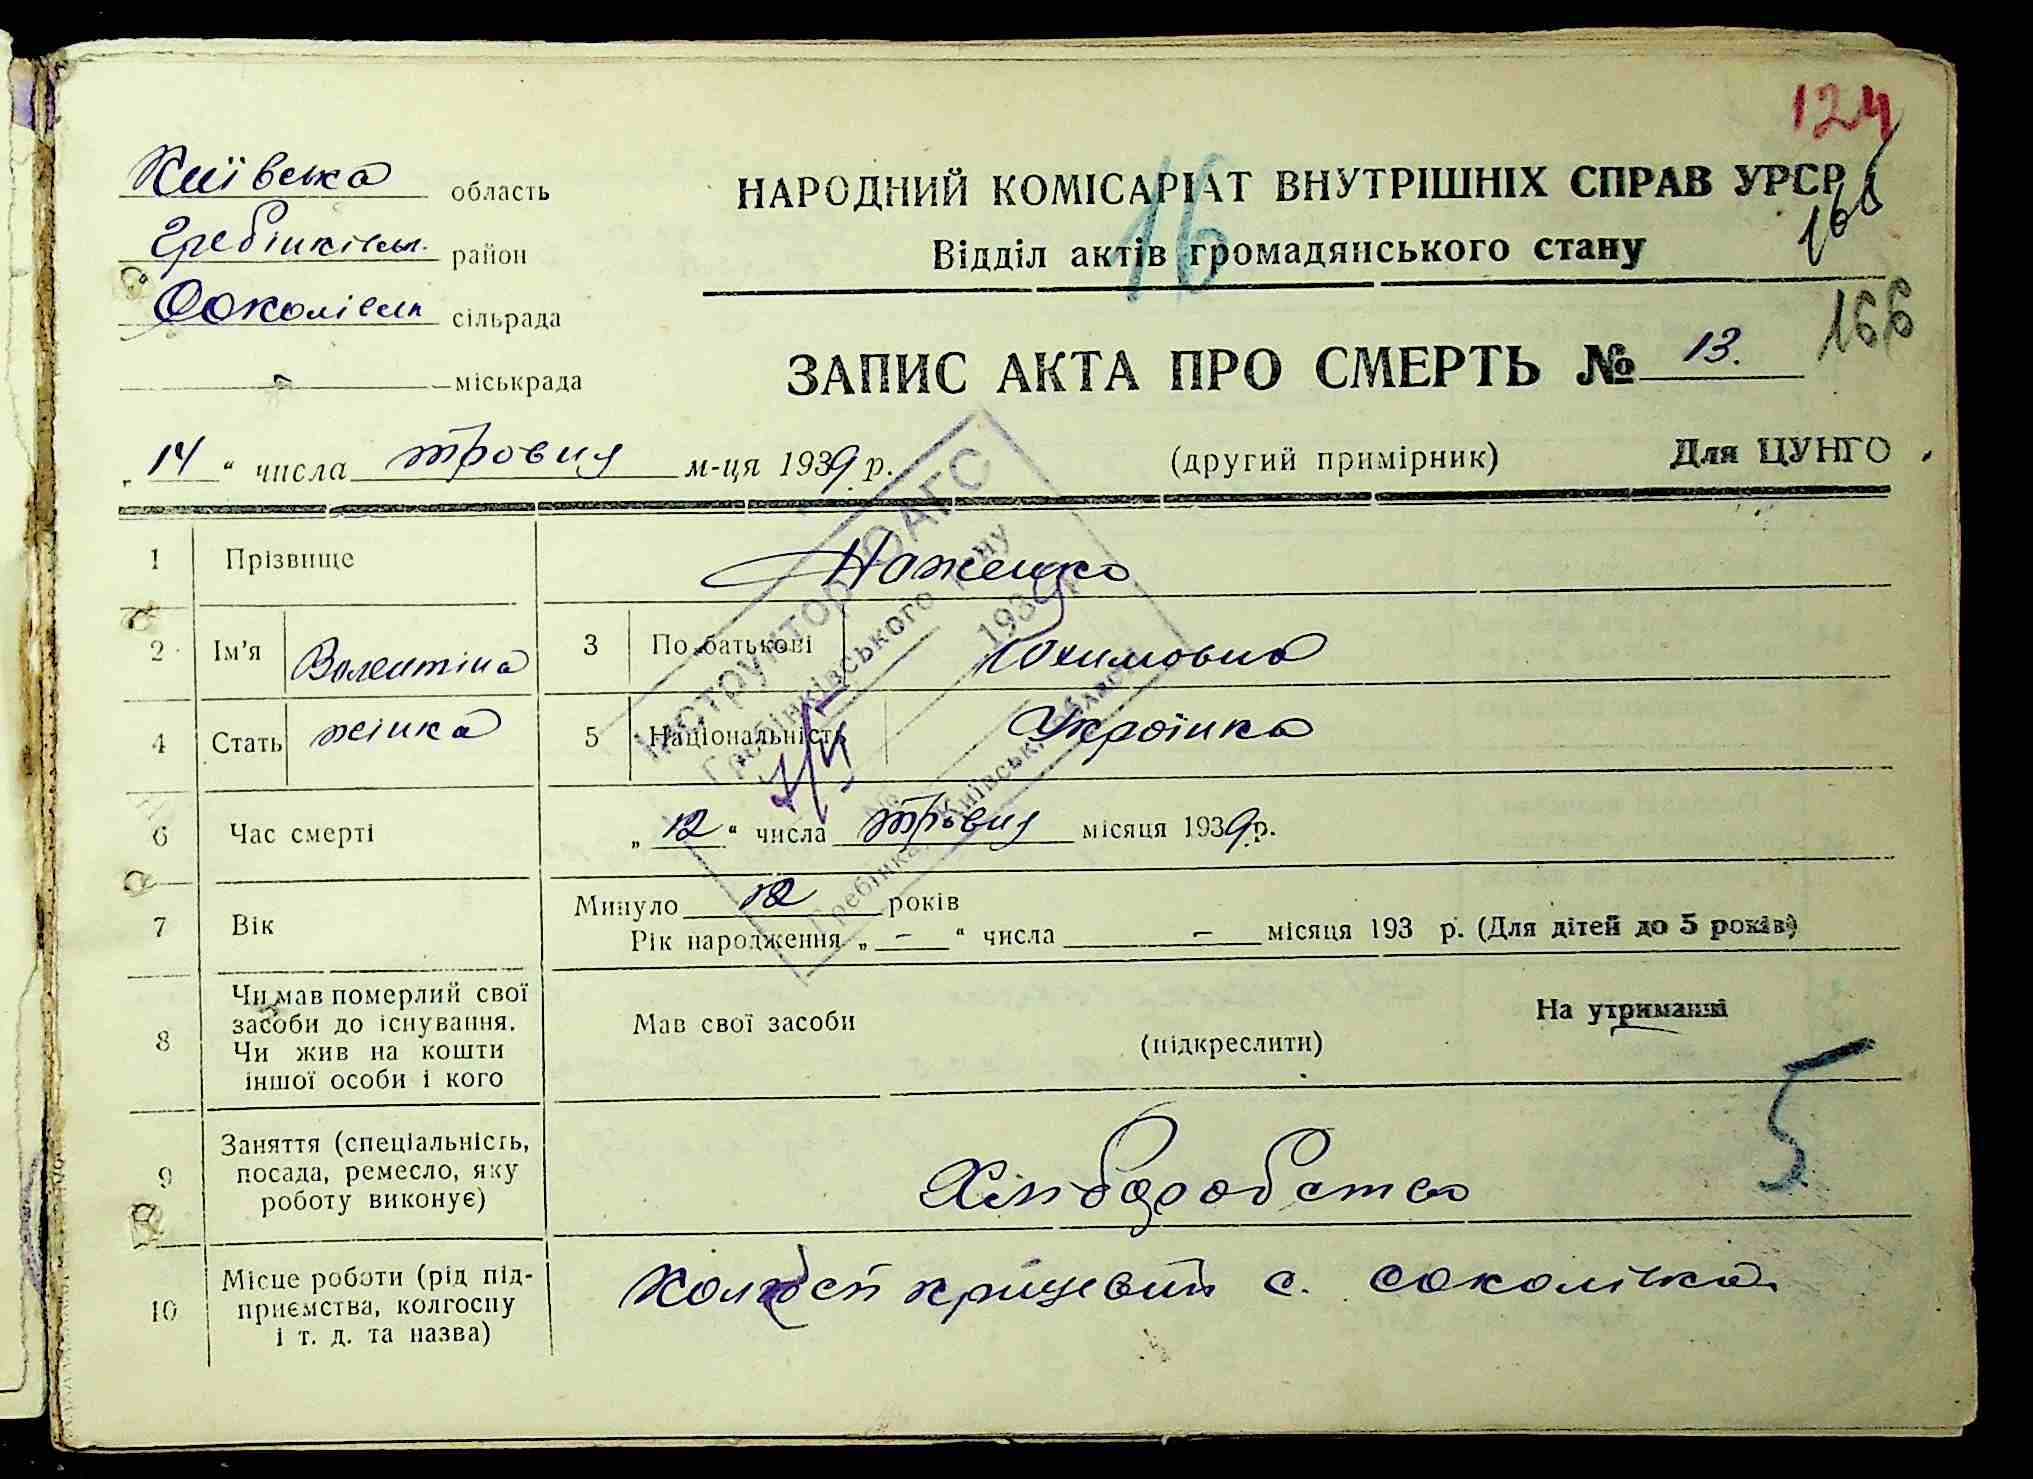 124
Київська область
НАРОДНИЙ КОМІСАРІАТ ВНУТРІШНІХ СПРАВ УРСР
16
166
Гребінківськ. район
Відділ актів громадянського стану
сільрада
166
міськрада
ЗАПИС АКТА ПРО СМЕРТЬ № 13.
„14“ числа травня м-ця 1939 р.
(другий примірник)
Для ЦУНГО
Інструктор ОАГС
Гребінківського
1939 р.
Київської області
1 Прізвище
2 Ім'я Валентіна 3 По батькові Юхимовна
4 Стать жінка 5 Національність Українка
6 Час смерті „12“ числа травня місяця 1939 р.
7 Вік Минуло 12 років
Рік народження „ – “ числа – місяця 193 р. (Для дітей до 5 років)
8 Чи мав померлий свої засоби до існування. Чи жив на кошти іншої особи і кого
Мав свої засоби
(підкреслити)
На утриманні
5
9 Заняття (спеціальність, посада, ремесло, яку роботу виконує)
10 Місце роботи (рід підприємства, колгоспу і т. д. та назва)
с. Соколівка